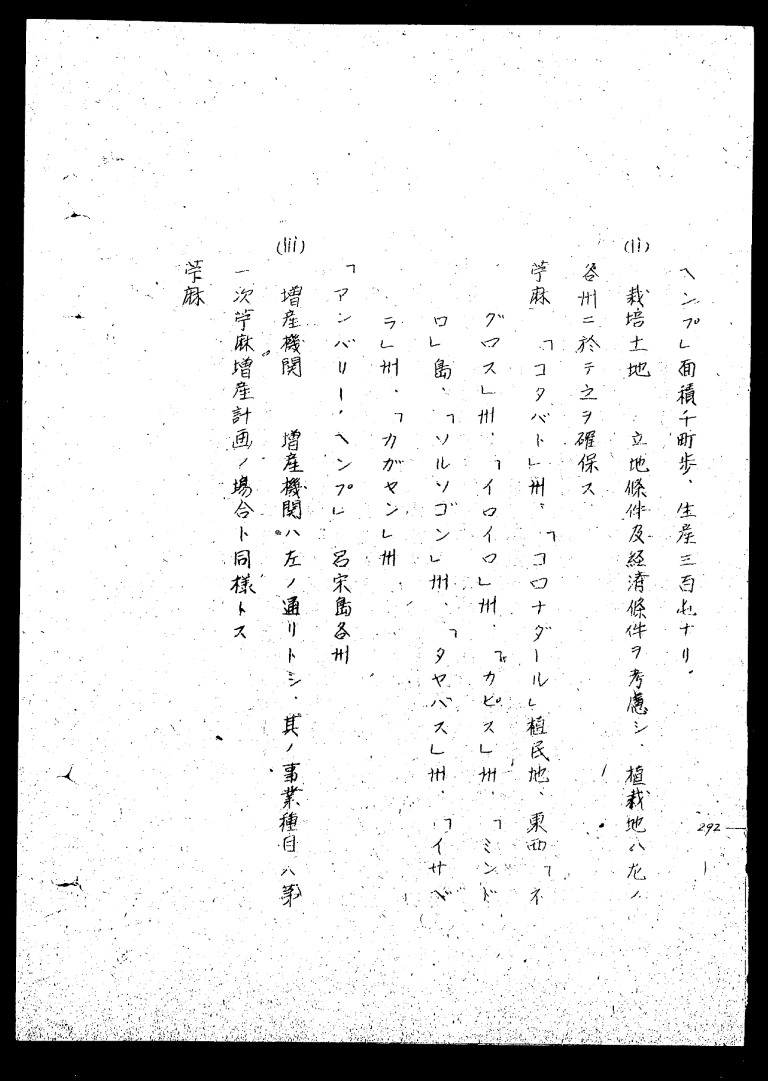 ヘンプ」面積千町歩、生産三百屯ナリ。
(ii) 栽培土地 立地條件及経済條件ヲ考慮シ、植栽地ハ左ノ
各州ニ於テ之ヲ確保ス
苧麻 「コタバト」州、「コロナダール」植民地、東西「ネ
グロス」州、「イロイロ」州、「カピス」州、「ミンド
ロ」島、「ソルソゴン」州、「タヤバス」州、「イサベ
ラ」州、「カガヤン」州
「アンバリー、ヘンプ」 呂宋島各州
(iii) 増産機関 増産機関ハ左ノ通リトシ、其ノ事業種目ハ第
一次苧麻増産計画ノ場合ト同様トス
苧麻
292